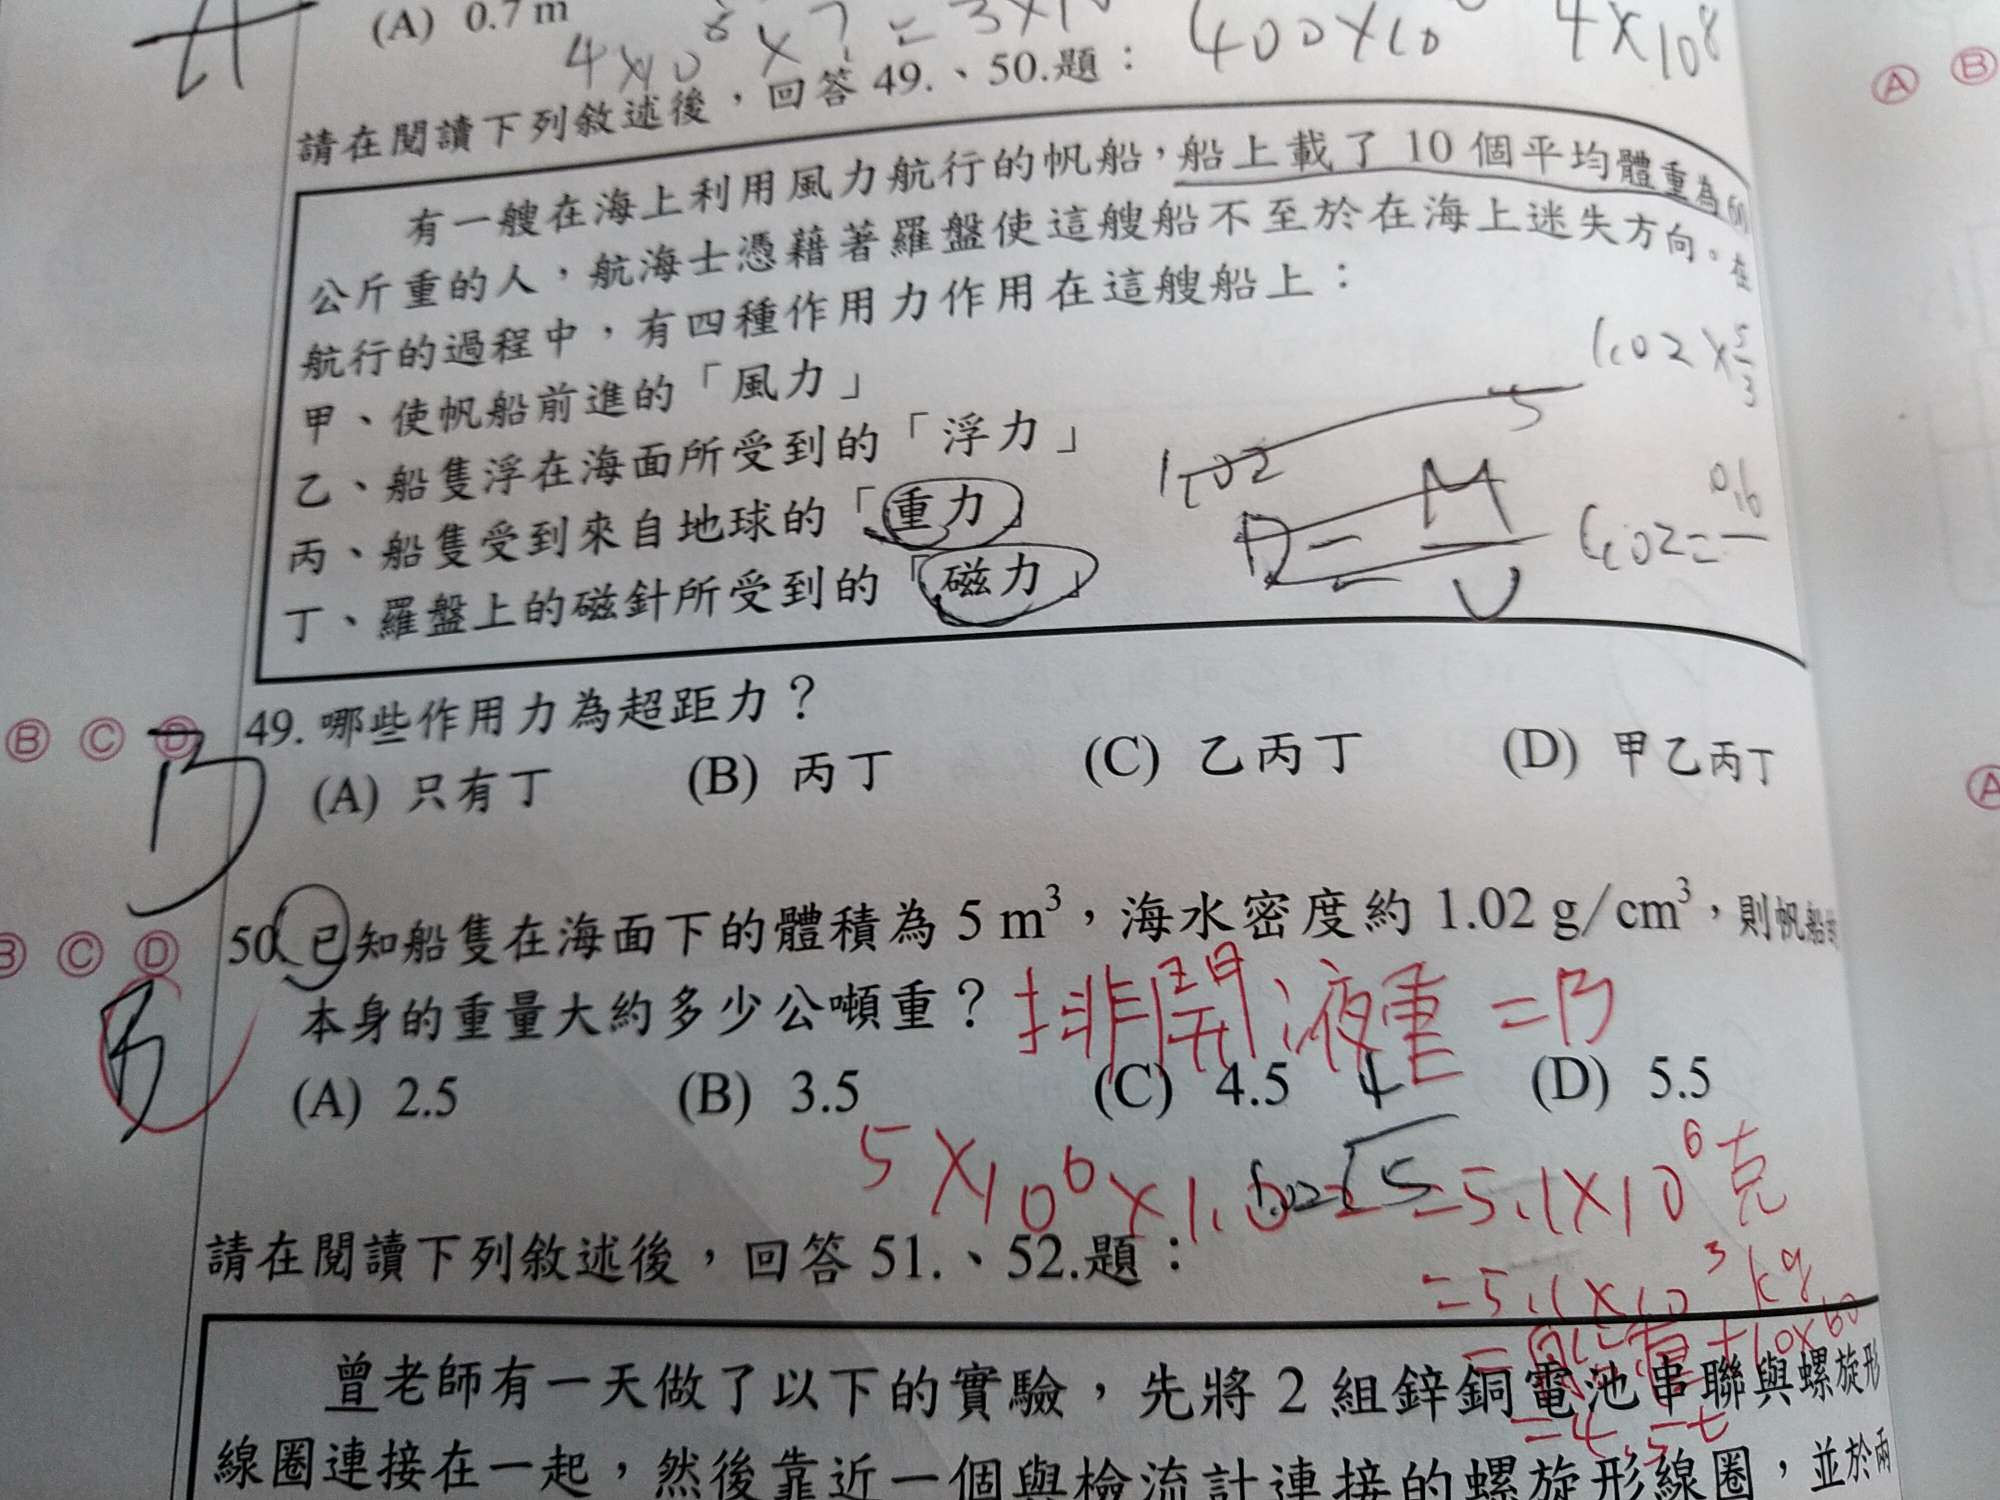 (A) 0.7 m
4×10⁸×?=3×1
400×10
4×10⁸
請在閱讀下列敘述後，回答 49.、50.題：
有一艘在海上利用風力航行的帆船，船上載了 10 個平均體重為 60
公斤重的人，航海士憑藉著羅盤使這艘船不至於在海上迷失方向。在
航行的過程中，有四種作用力作用在這艘船上：
甲、使帆船前進的「風力」
乙、船隻浮在海面所受到的「浮力」
丙、船隻受到來自地球的「重力」
丁、羅盤上的磁針所受到的「磁力」
1.02×5/3
1.02
5
D=M/V
1.02=
49. 哪些作用力為超距力？
(A) 只有丁 (B) 丙丁 (C) 乙丙丁 (D) 甲乙丙丁
B C D
B
50. 已知船隻在海面下的體積為 5 m³，海水密度約 1.02 g/cm³，則帆船
本身的重量大約多少公噸重？
排開液重=B
(A) 2.5 (B) 3.5 (C) 4.5 (D) 5.5
B C D
4
1.02√5
5×10⁶×1.02=5.1×10⁶克
=5.1×10³kg
=船重+10×60
=4.5t
請在閱讀下列敘述後，回答 51.、52.題：
曾老師有一天做了以下的實驗，先將 2 組鋅銅電池串聯與螺旋形
線圈連接在一起，然後靠近一個與檢流計連接的螺旋形線圈，並於兩
A B
A